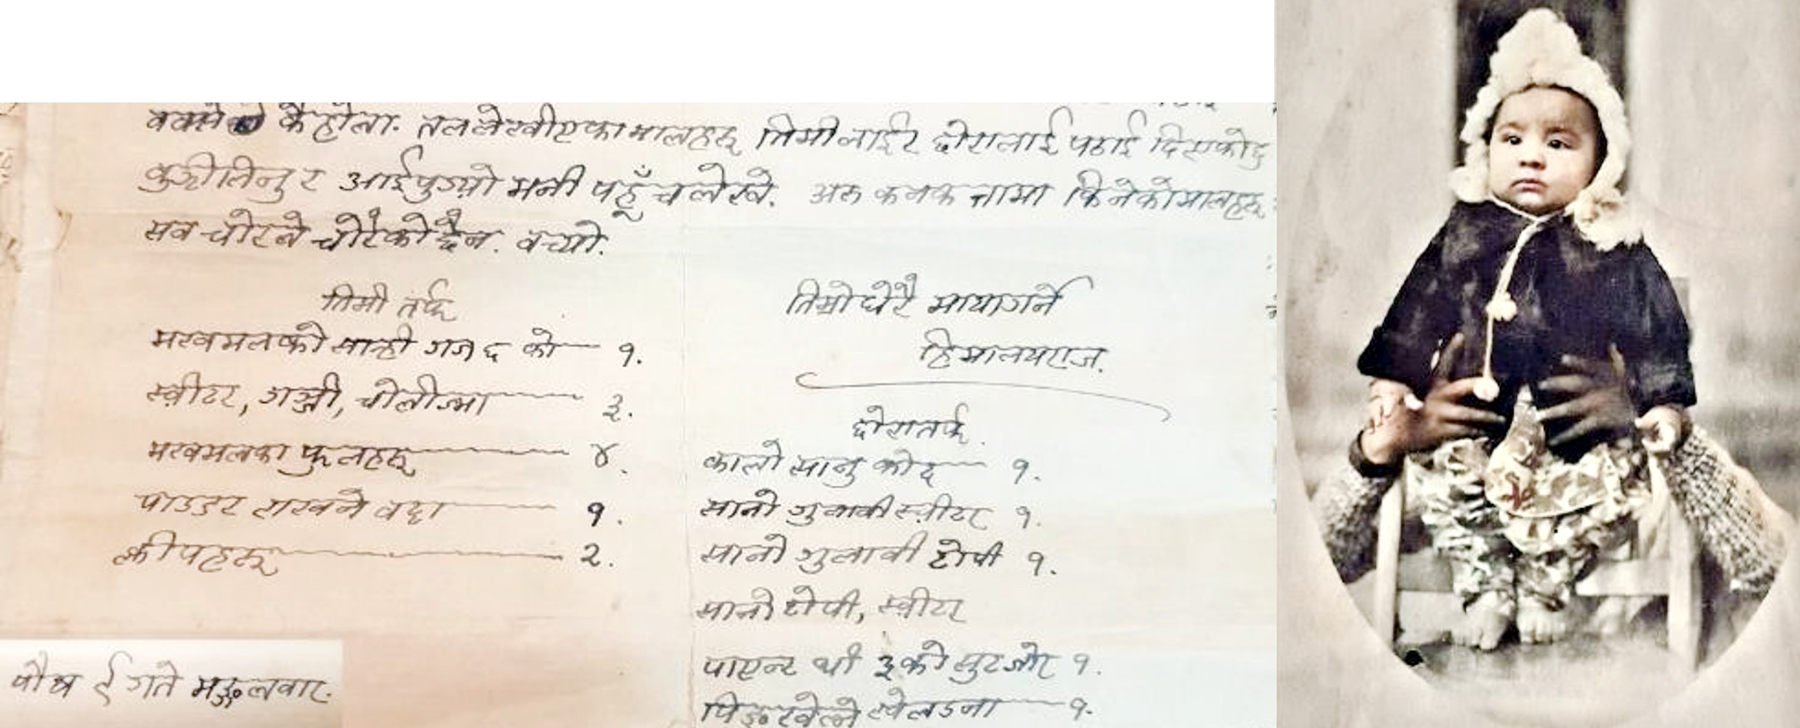 कैहोला. तललेखीएका मालहरू तिमीलाई र छोरालाई पठाई दिएकोछु
आईपुग्यो भनी पहूँच लेखे. अरु किनेको मालहरू
सव चोरले चोरेको छैन. वच्यो.
तिमी तर्फ
मखमलको सारी गज ६ को — १.
स्वीटर, गञ्जी, चोलीज्मा — ३.
मखमलका फुलहरू — ४.
पाउडर राख्ने वट्टा — १.
क्लीपहरू — २.
तिम्रो धेरै मायागर्ने
हिमालयराज.
छोरातर्फ.
कालो सानु कोट — १.
सानो गुलावी स्वीटर १.
सानो गुलावी टोपी १.
सानो टोपी, स्वीटर
पाएन्ट थी ३ को सुट जोर १.
पिङ्ग खेल्ने खेलउना — १.
पौष ९ गते मङ्गलवार.